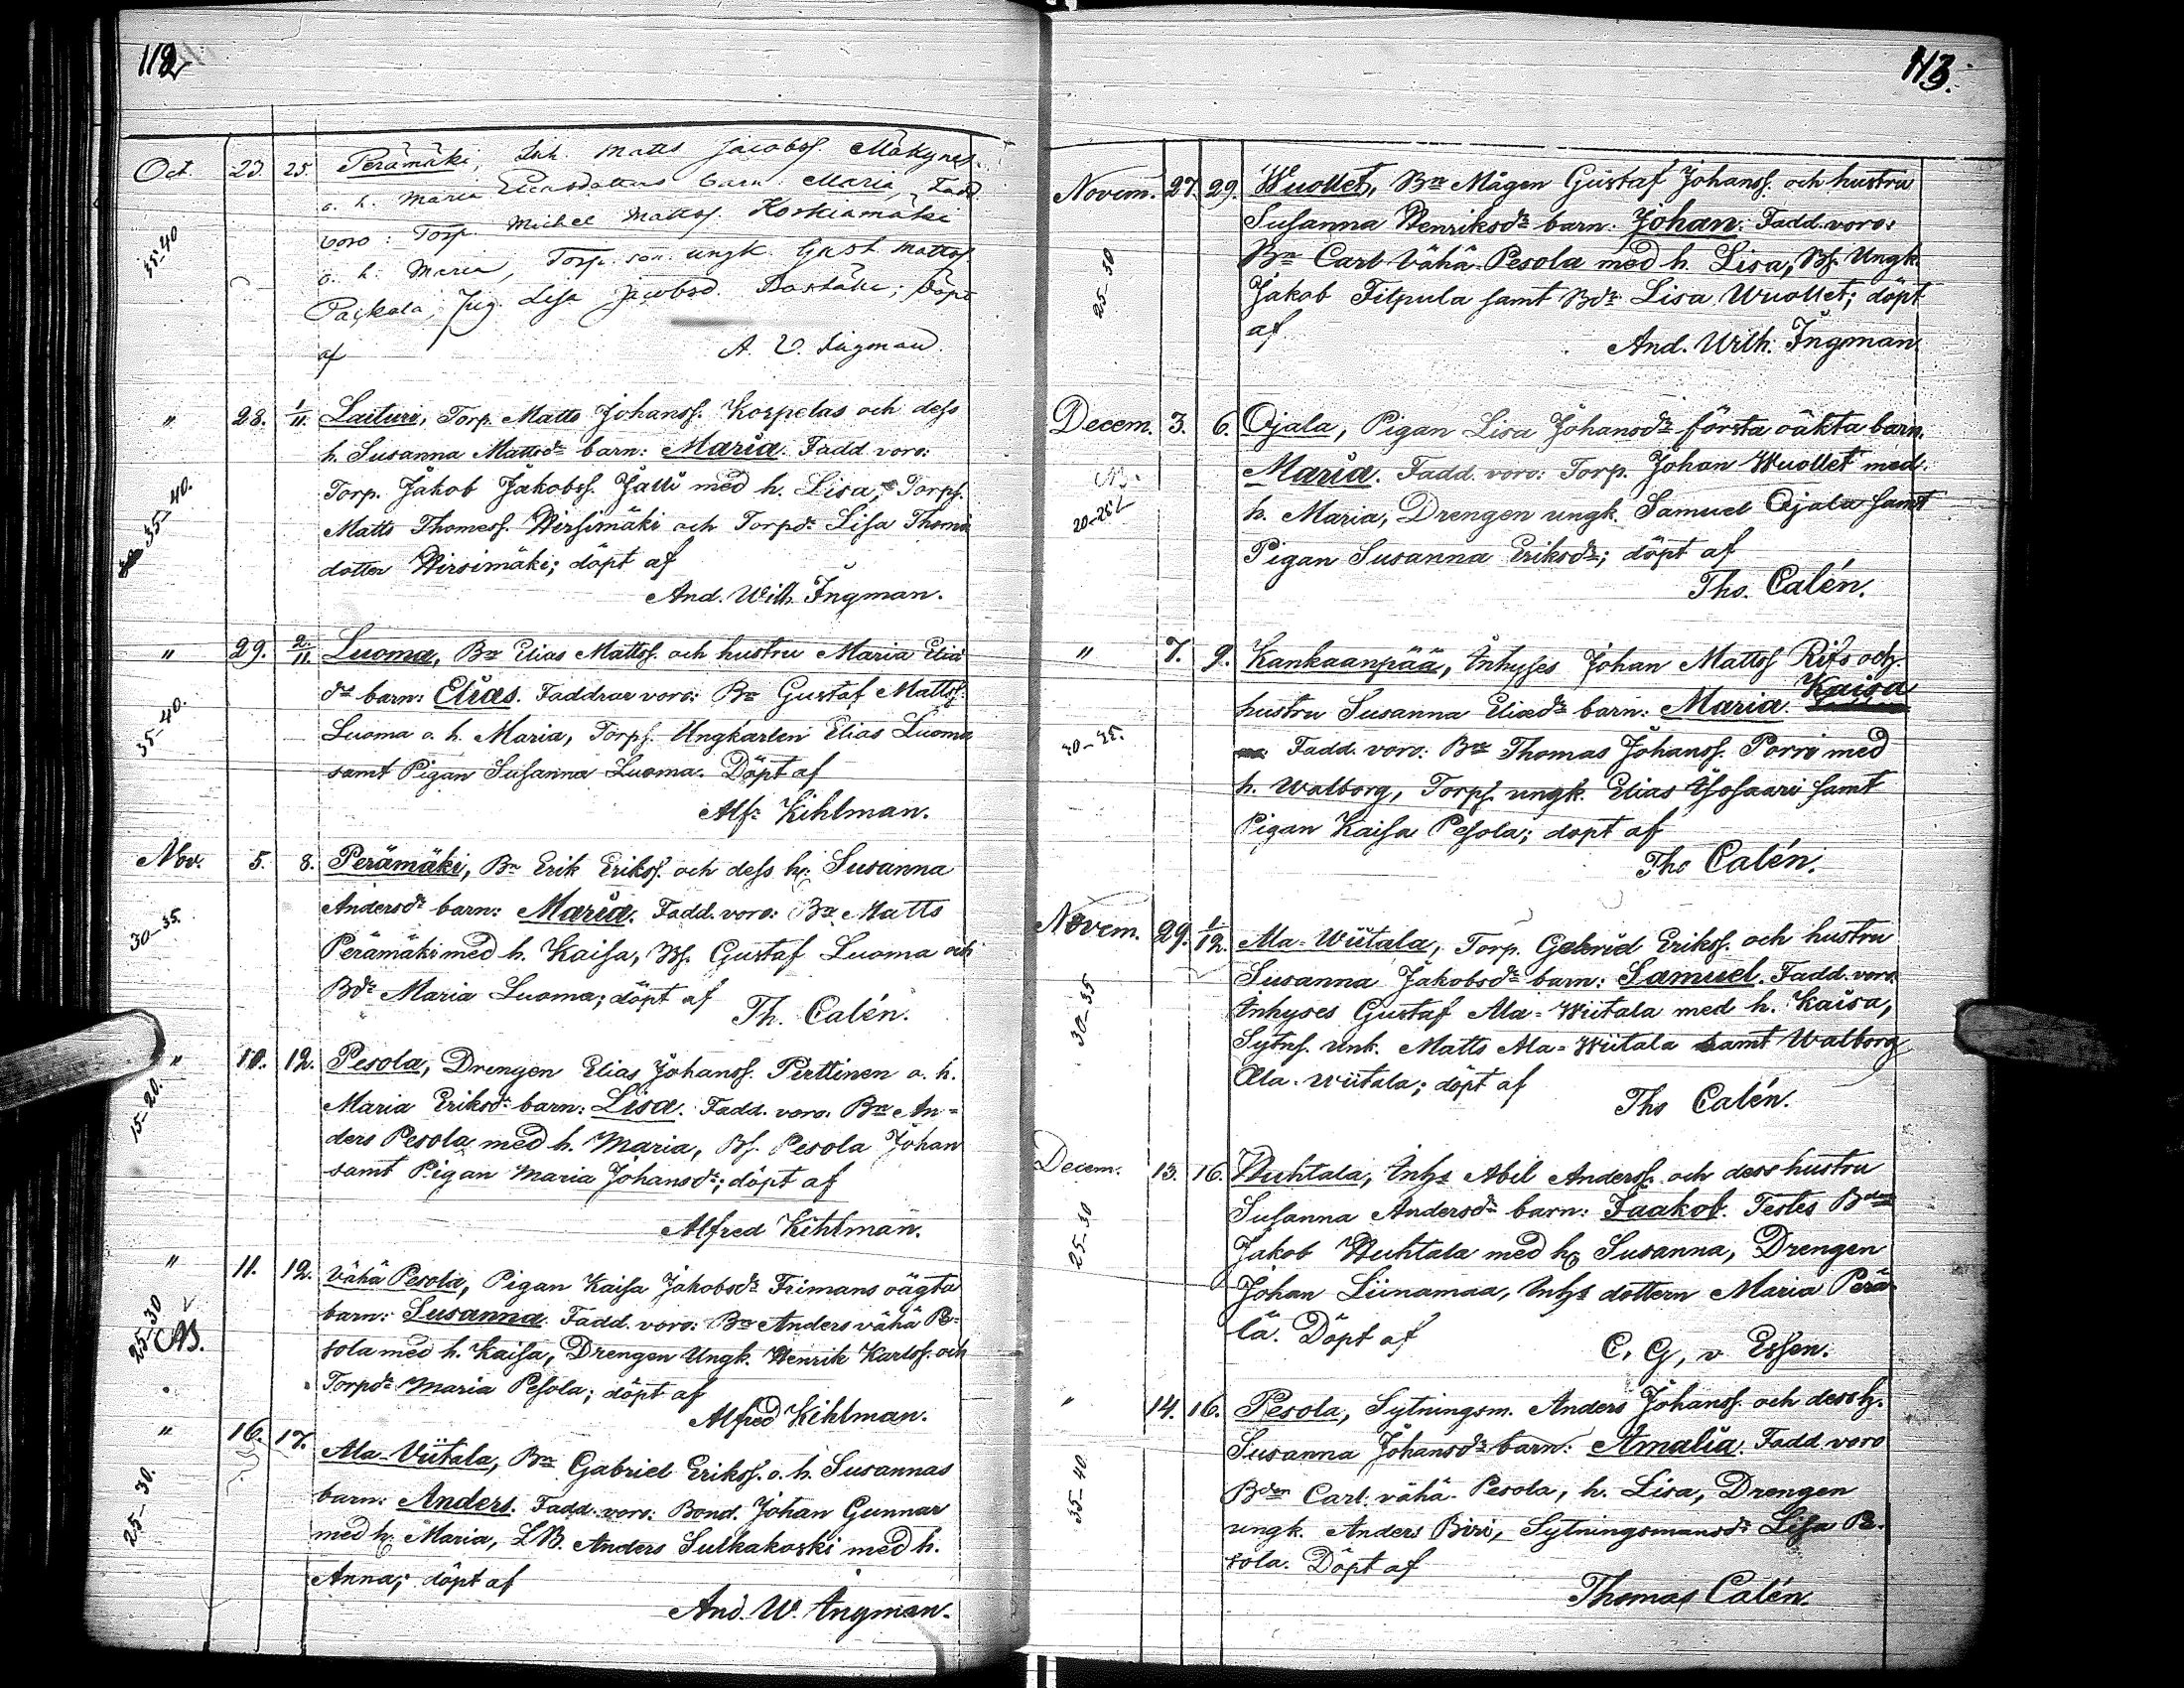 112
Oct. 23. 25. Perämäki, Inh. Matts Jacobss. Mäkynes
o. h. Maria Eliasdotters barn: Maria, Fadd.
voro: Torp. Michel Mattss. Koskiamäki
o. h. Maria, Torp. son ungk. Gust. Mattss.
35-40
Lisa Jacobsd. döpt
af A. V. Ingman.
" 28. 1/11. Laituri, Torp. Matts Johanss. Korpelas och dess
h. Susanna Mattsdr barn: Maria. Fadd. voro:
Torp. Jakob Jakobss. Jalli med h. Lisa, Torps.
35-40.
Matts Thomess. Wirsimäki och Torpdr Lisa Thomæ
dotter Wirsimäki; döpt af
And. Wilh. Ingman.
" 29. 2/11. Luoma, Br Elias Mattss. och hustru Maria Eliæ
dr barn: Elias. Faddrar voro: Br Gustaf Mattss.
35-40.
Luoma o. h. Maria, Torps. Ungkarlen Elias Luoma
samt Pigan Susanna Luoma. Döpt af
Alfr Kihlman.
Nov. 5. 8. Perämäki, Br Erik Erikss. och dess h. Susanna
Andersdr barn: Maria. Fadd. voro: Br Matts
30-35.
Perämäki med h. Kaisa, Bs. Gustaf Luoma och
Bdr Maria Luoma; döpt af
Th. Calén.
" 10. 12. Pesola, Drengen Elias Johanss. Perttinen o. h.
Maria Eriksdr barn: Lisa. Fadd. voro: Br An=
15-20.
ders Pesola med h. Maria, Bs. Pesola Johan
samt Pigan Maria Johansdr; döpt af
Alfred Kihlman.
" 11. 12. Vähä Pesola, Pigan Kaisa Jakobsdr Frimans oägta
barn: Susanna. Fadd. voro: Br Anders vähä Pe=
25-30
NB.
sola med h. Kaisa, Drengen Ungk. Henrik Karlss. och
Torpdr Maria Pesola; döpt af
Alfred Kihlman.
" 16. 17. Ala-Viitala, Br Gabriel Erikss. o. h. Susannas
barn: Anders. Fadd. voro: Bond. Johan Gunnar
25-30.
med h. Maria, LB. Anders Sulkakoski med h.
Anna; döpt af
And. W. Ingman.
113.
Novem. 27. 29. Wuollet, Br Mågen Gustaf Johanss. och hustru
Susanna Henriksdr barn: Johan. Fadd. voro:
25-30
Br Carl Vähä-Pesola med h. Lisa, Bs. Ungk.
Jakob Filpula samt Bdr Lisa Wuollet; döpt
af
And. Wilh. Ingman
Decem. 3. 6. Ojala, Pigan Lisa Johansdr första oäkta barn.
Maria. Fadd. voro: Torp. Johan Wuollet med
NB.
20-25
h. Maria, Drengen ungk. Samuel Ojala samt
Pigan Susanna Eriksdr; döpt af
Tho. Calén.
" 7. 9. Kankaanpää, Inhyses Johan Mattss Rifs och
hustru Susanna Eliædr barn: Maria Kaisa
30-35.
Fadd. voro: Br Thomas Johanss. Porri med
h. Walborg, Torps. ungk. Elias Isosaari samt
Pigan Kaisa Pesola; döpt af
Tho Calén.
Novem. 29. 1/12. Ala-Wiitala, Torp. Gabriel Erikss. och hustru
Susanna Jakobsdr barn: Samuel. Fadd. voro:
30-35
Inhyses Gustaf Ala=Wiitala med h. Kaisa,
Sytns. unk. Matts Ala=Wiitala samt Walborg
Ala-Wiitala; döpt af
Tho Calén.
Decem. 13. 16. Huhtala, Inhs Abel Anderss. och dess hustru
Susanna Andersdr barn: Jaakob. Testes Bden
25-30
Jakob Huhtala med h. Susanna, Drengen
Johan Liinamaa, Inhs dottern Maria Perä-
lä. Döpt af
C. G. v Essen.
" 14. 16. Pesola, Sytningsm. Anders Johanss. och dess h.
Susanna Johansdr barn: Amalia. Fadd. voro
35-40
Bden Carl vähä-Pesola, h. Lisa, Drengen
ungk. Anders Biri, Sytningsmansdr Lisa Pe-
sola. Döpt af
Thomas Calén.